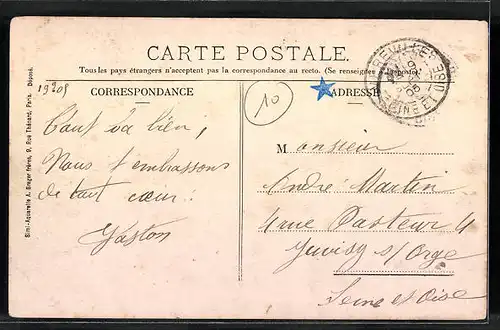 CARTE POSTALE.
Tous les pays étrangers n'acceptent pas la correspondance au recto. (Se renseigner à la poste)
CORRESPONDANCE
ADRESSE
19209
10
Simi-Aquarelle A. Breger frères, 9, Rue Thénard, Paris. Déposé.
Tout va bien,
Nous t'embrassons
de tout cœur.
Gaston
Monsieur
André Martin
4 rue Pasteur 4
Juvisy s/Orge
Seine et Oise